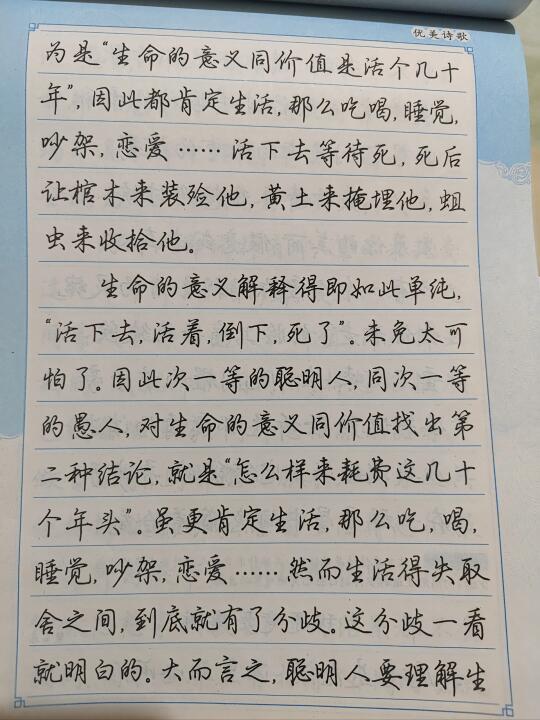 优美诗歌
为是“生命的意义同价值是活个几十
年”,因此都肯定生活,那么吃喝,睡觉,
吵架,恋爱……活下去等待死,死后
让棺木来装殓他,黄土来掩埋他,蛆
虫来收拾他。
生命的意义解释得即如此单纯,
“活下去,活着,倒下,死了”。未免太可
怕了。因此次一等的聪明人,同次一等
的愚人,对生命的意义同价值找出第
二种结论,就是“怎么样来耗费这几十
个年头”。虽更肯定生活,那么吃,喝,
睡觉,吵架,恋爱……然而生活得失取
舍之间,到底就有了分歧。这分歧一看
就明白的。大而言之,聪明人要理解生